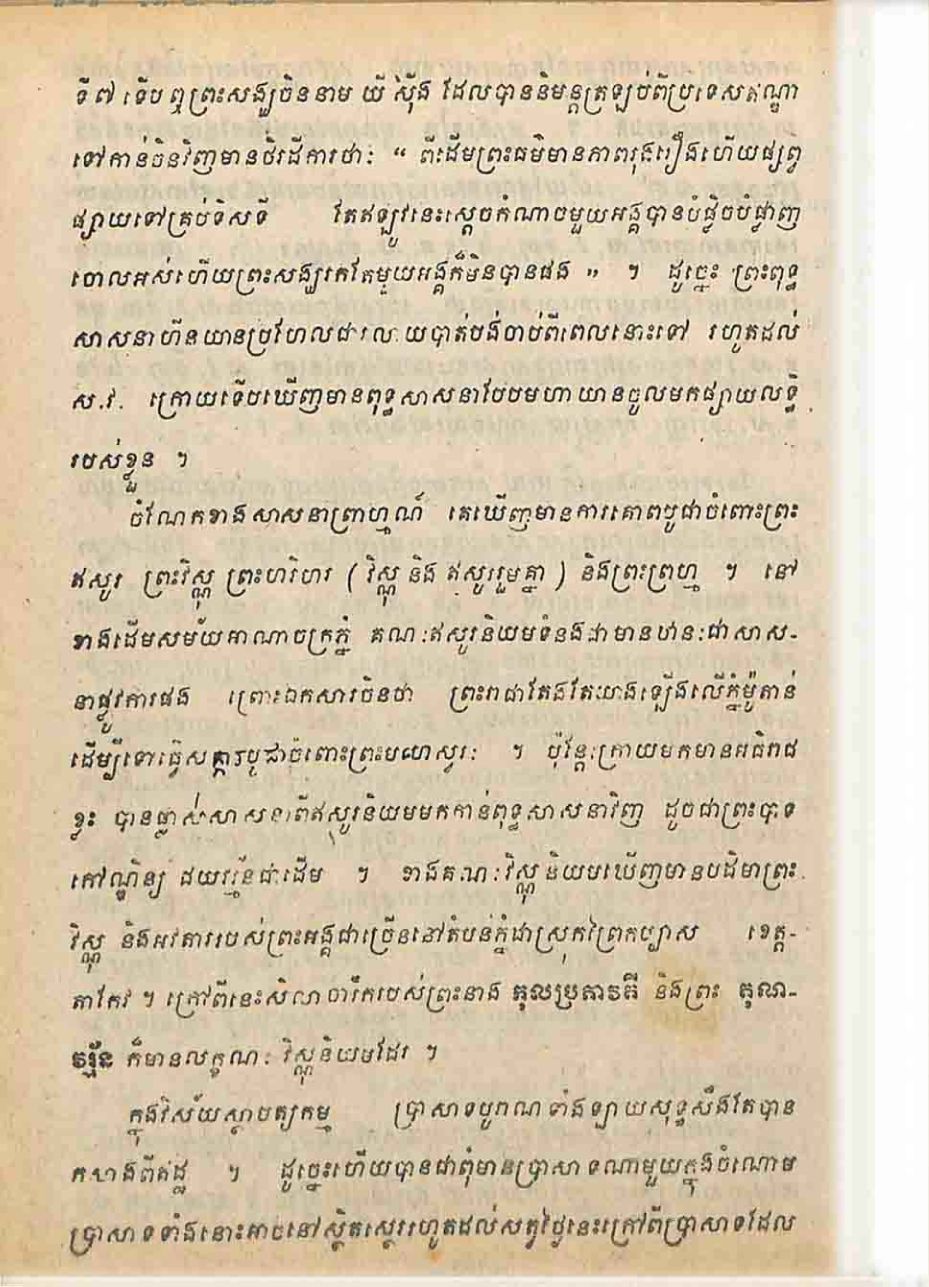 ទី ៧ ទើប ឮព្រះសង្ឃចិននាម យី ស៊ីង ដែលបាននិមន្តត្រឡប់ពីប្រទេសឥណ្ឌា
ទៅកាន់ចិនវិញមានថិរដីការថា: “ ពីដើមព្រះធម៌មានភាពរុងរឿងហើយផ្សព្វ
ផ្សាយទៅគ្រប់ទិសទី តែឥឡូវនេះស្តេចកំណាចមួយអង្គបានបំផ្លិចបំផ្លាញ
ចោលអស់ហើយព្រះសង្ឃរកតែមួយអង្គក៏មិនបានផង ” ។ ដូច្នេះ ព្រះពុទ្ធ
សាសនាហីនយានប្រហែលជារលាយបាត់បង់ចាប់ពីពេលនោះទៅ រហូតដល់
ស.វ. ក្រោយទើបឃើញមានពុទ្ធសាសនាបែបមហាយានចូលមកផ្សាយលទ្ធិ
របស់ខ្លួន ។
ចំណែកខាងសាសនាព្រាហ្មណ៍ គេឃើញមានការគោពបូជាចំពោះព្រះ
ឥសូរ ព្រះវិស្ណុ ព្រះហរិហរ ( វិស្ណុ និង ឥសូររួមគ្នា ) និងព្រះព្រហ្ម ។ នៅ
ខាងដើមសម័យអាណាចក្រភ្នំ គណៈឥសូរនិយមទំនងជាមានឋានៈជាសាស-
នាផ្លូវការផង ព្រោះឯកសារចិនថា ព្រះរាជាតែងតែយាងឡើងលើភ្នំម៉ូតាន់
ដើម្បីទៅធ្វើសក្ការបូជាចំពោះព្រះមហេស្វរៈ ។ ប៉ុន្តែក្រោយមកមានអធិរាជ
ខ្លះ បានផ្លាស់សាសនាពីឥសូរនិយមមកកាន់ពុទ្ធសាសនាវិញ ដូចជាព្រះបាទ
កៅណ្ឌិន្យ ជយវរ្ម័នជាដើម ។ ខាងគណៈវិស្ណុនិយមឃើញមានបដិមាព្រះ
វិស្ណុ និងអវតាររបស់ព្រះអង្គជាច្រើននៅតំបន់ភ្នំដាស្រុកព្រៃកប្បាស ខេត្ត-
តាកែវ ។ ក្រៅពីនេះសិលាចារឹករបស់ព្រះនាង កុលប្រភាវតី និងព្រះ គុណ-
វរ្ម័ន ក៏មានលក្ខណៈ វិស្ណុនិយមដែរ ។
ក្នុងវិស័យស្ថាបត្យកម្ម ប្រាសាទបូរាណទាំងឡាយសុទ្ធសឹងតែបាន
កសាងពីឥដ្ឋ ។ ដូច្នេះហើយបានជាពុំមានប្រាសាទណាមួយក្នុងចំណោម
ប្រាសាទទាំងនោះអាចនៅស្ថិតស្ថេររហូតដល់សព្វថ្ងៃនេះក្រៅពីប្រាសាទដែល